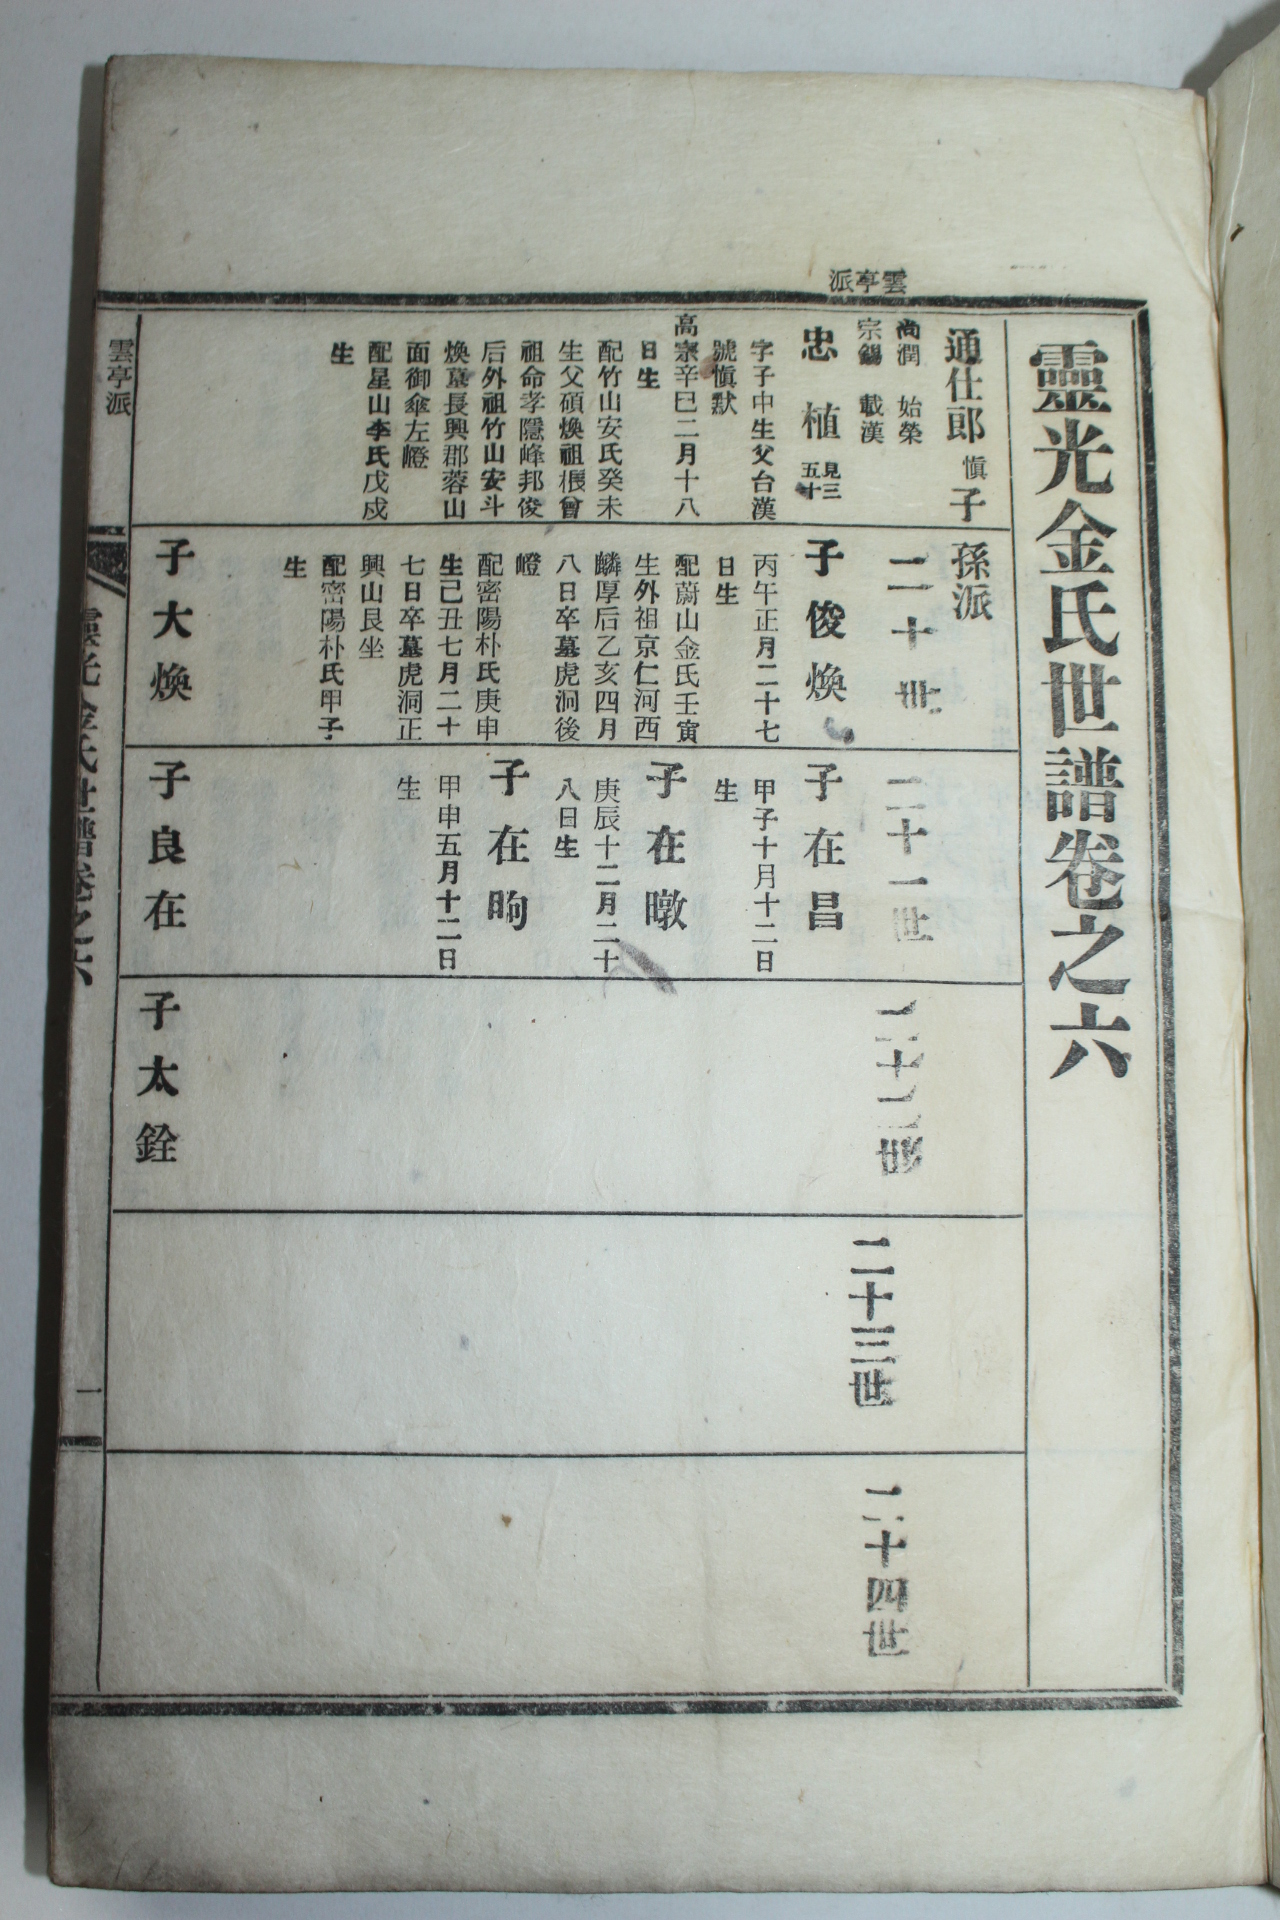 靈光金氏世譜卷之六
雲亭派
通仕郎 愼 子
尚潤 始榮
宗錫 載漢
忠植 見三
五十
字子中生父台漢
號愼默
高宗辛巳二月十八
日生
配竹山安氏癸未
生父碩煥祖根曾
祖命孝隱峰邦俊
后外祖竹山安斗
煥墓長興郡蓉山
面御傘左嶝
配星山李氏戊戌
生
孫派
二十世
子俊煥
丙午正月二十七
日生
配蔚山金氏壬寅
生外祖京仁河西
麟厚后乙亥四月
八日卒墓虎洞後
嶝
配密陽朴氏庚申
生己丑七月二十
七日卒墓虎洞正
興山艮坐
配密陽朴氏甲子
生
子大煥
二十一世
子在昌
甲子十月十二日
生
子在暾
庚辰十二月二十
八日生
子在昫
甲申五月十二日
生
子良在
二十二世
子太銓
二十三世
二十四世
雲亭派
靈光金氏世譜卷之六
一